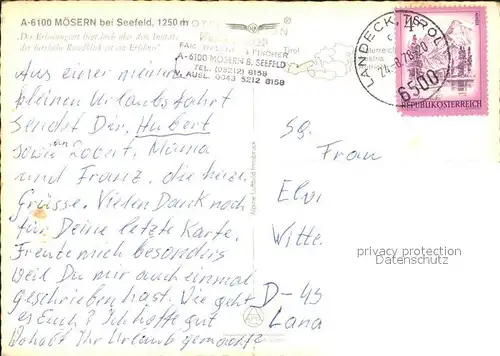 A-6100 MÖSERN bei Seefeld, 1250 m
"Der Erholungsort liegt hoch über dem Inntale
der herrliche Rundblick ist ein Erlebnis"
A-6100 MÖSERN B. SEEFELD
TEL. (05212) 8158
V. AUSL. 0043 5212 8158
Tirol
LANDECK, TIROL
6500
4
REPUBLIK ÖSTERREICH
Aus einer meinen
kleinen Urlaubsfahrt
sendet Dir, Hubert
sowie an Robert, Mama
und Franz, die herzl.
Grüsse. Vielen Dank noch
für Deine letzte Karte.
Freute mich besonders
weil Du mir auch einmal
geschrieben hast. Wie geht
es Euch? Ich hoffe gut
Habt Ihr Urlaub gemacht?
Sg.
Frau
Elvi
Witte
D-45
Lana
Alpine Luftbild Innsbruck
privacy protection
Datenschutz